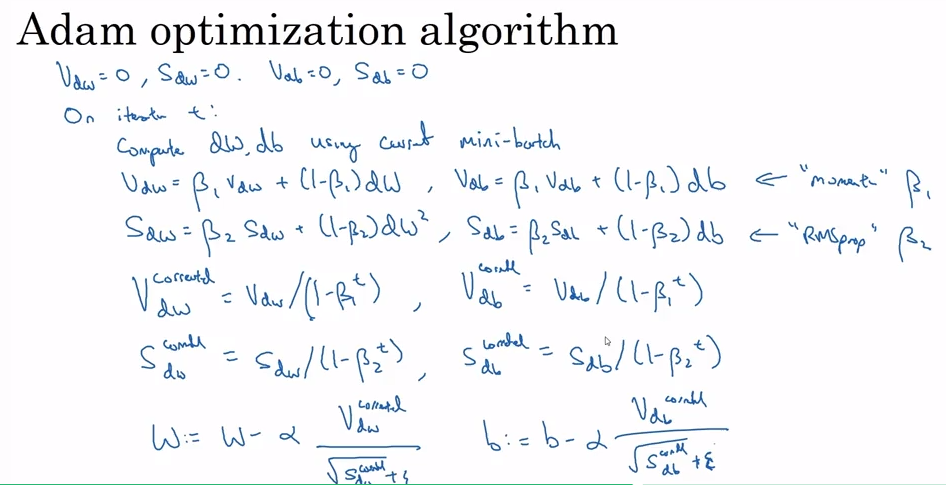 Adam optimization algorithm
V_dw = 0, S_dw = 0. V_db = 0, S_db = 0
On iteration t:
Compute dW, db using current mini-batch
V_dw = β₁ V_dw + (1-β₁) dW , V_db = β₁ V_db + (1-β₁) db ← "momentum" β₁
S_dw = β₂ S_dw + (1-β₂) dW² , S_db = β₂ S_db + (1-β₂) db ← "RMSprop" β₂
V_dw^corrected = V_dw / (1-β₁^t) , V_db^corrected = V_db / (1-β₁^t)
S_dw^corrected = S_dw / (1-β₂^t) , S_db^corrected = S_db / (1-β₂^t)
W := W - α V_dw^corrected / √S_dw^corrected + ε b := b - α V_db^corrected / √S_db^corrected + ε